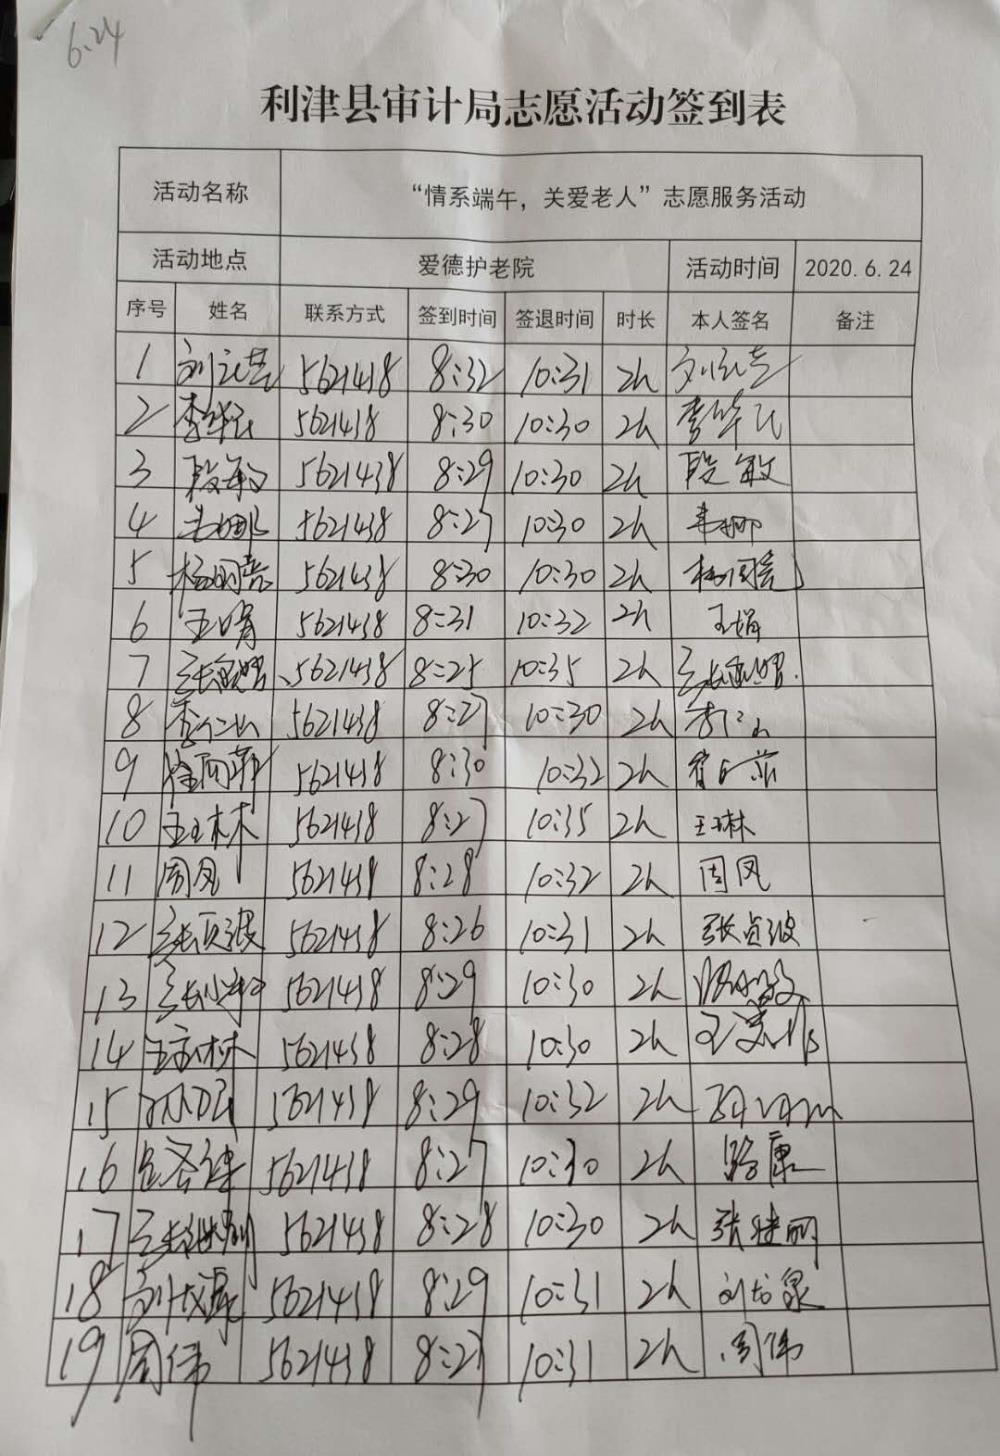 6.24
利津县审计局志愿活动签到表
活动名称 “情系端午，关爱老人”志愿服务活动
活动地点 爱德护老院 活动时间 2020.6.24
序号 姓名 联系方式 签到时间 签退时间 时长 本人签名 备注
1 5621438 8:32 10:31 2h
2 5621438 8:30 10:30 2h
3 段敏 5621438 8:29 10:30 2h 段敏
4 5621438 8:27 10:30 2h
5 5621438 8:30 10:30 2h
6 王娟 5621438 8:31 10:32 2h 王娟
7 5621438 8:25 10:35 2h
8 5621438 8:27 10:30 2h
9 5621438 8:30 10:32 2h
10 王琳 5621438 8:27 10:35 2h 王琳
11 周凤 5621438 8:28 10:32 2h 周凤
12 张贞波 5621438 8:26 10:31 2h 张贞波
13 5621438 8:29 10:30 2h
14 5621438 8:28 10:30 2h
15 5621438 8:29 10:32 2h
16 5621438 8:27 10:30 2h
17 张继丽 5621438 8:28 10:30 2h 张继丽
18 5621438 8:29 10:31 2h
19 周伟 5621438 8:27 10:31 2h 周伟